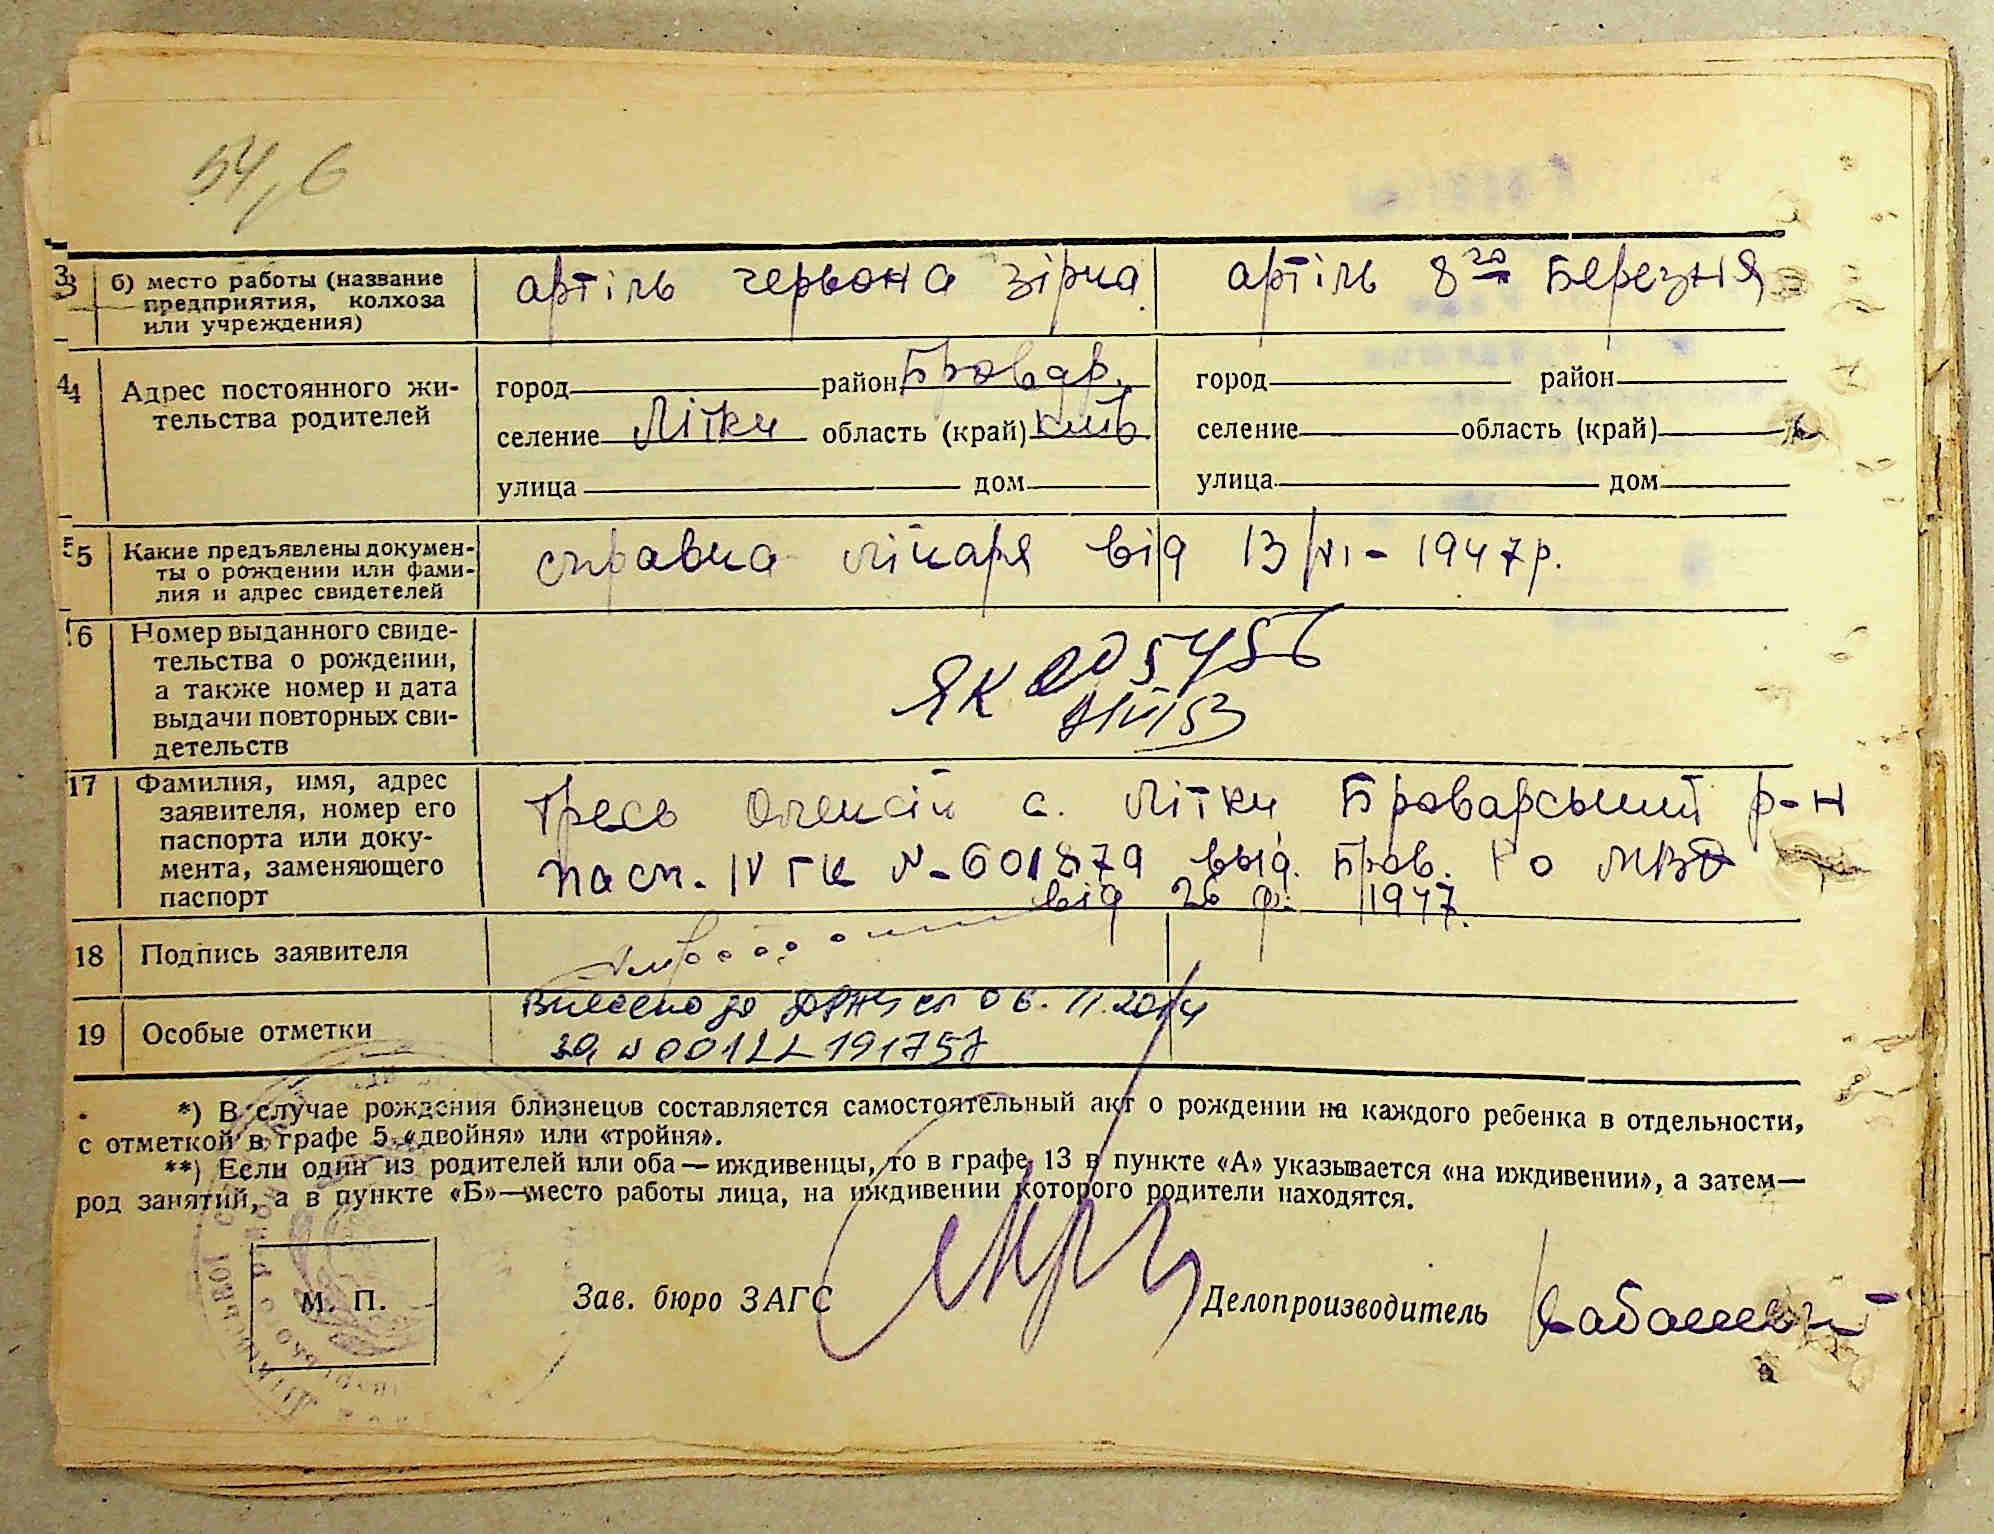 54,6
3 б) место работы (название предприятия, колхоза или учреждения) артіль червона зірка артіль 8го Березня
4 Адрес постоянного жи-
тельства родителей
город район Бровар. город район
селение Літки область (край) київ селение область (край)
улица дом улица дом
5 Какие предъявлены докумен-
ты о рождении или фами-
лия и адрес свидетелей
справка лікаря від 13/VI - 1947р.
6 Номер выданного свиде-
тельства о рождении,
а также номер и дата
выдачи повторных сви-
детельств
ЯК 005456
17 Фамилия, имя, адрес
заявителя, номер его
паспорта или доку-
мента, заменяющего
паспорт
Тресь Олексій с. Літки Броварський р-н
пасп. IV ГК № 601879 выд. Бров. РО МВД
від 26 1947.
18 Подпись заявителя
19 Особые отметки
Внесено до ДРАЦС 06.11.2014
за № 00122191757
*) В случае рождения близнецов составляется самостоятельный акт о рождении на каждого ребенка в отдельности,
с отметкой в графе 5 «двойня» или «тройня».
**) Если один из родителей или оба — иждивенцы, то в графе 13 в пункте «А» указывается «на иждивении», а затем—
род занятий, а в пункте «Б»—место работы лица, на иждивении которого родители находятся.
М. П. Зав. бюро ЗАГС Делопроизводитель